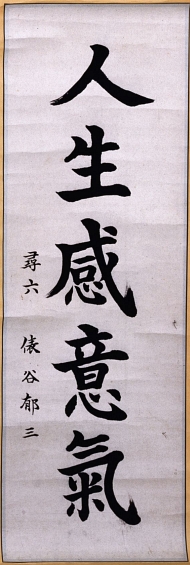 人生感意氣
尋六 俵谷郁三